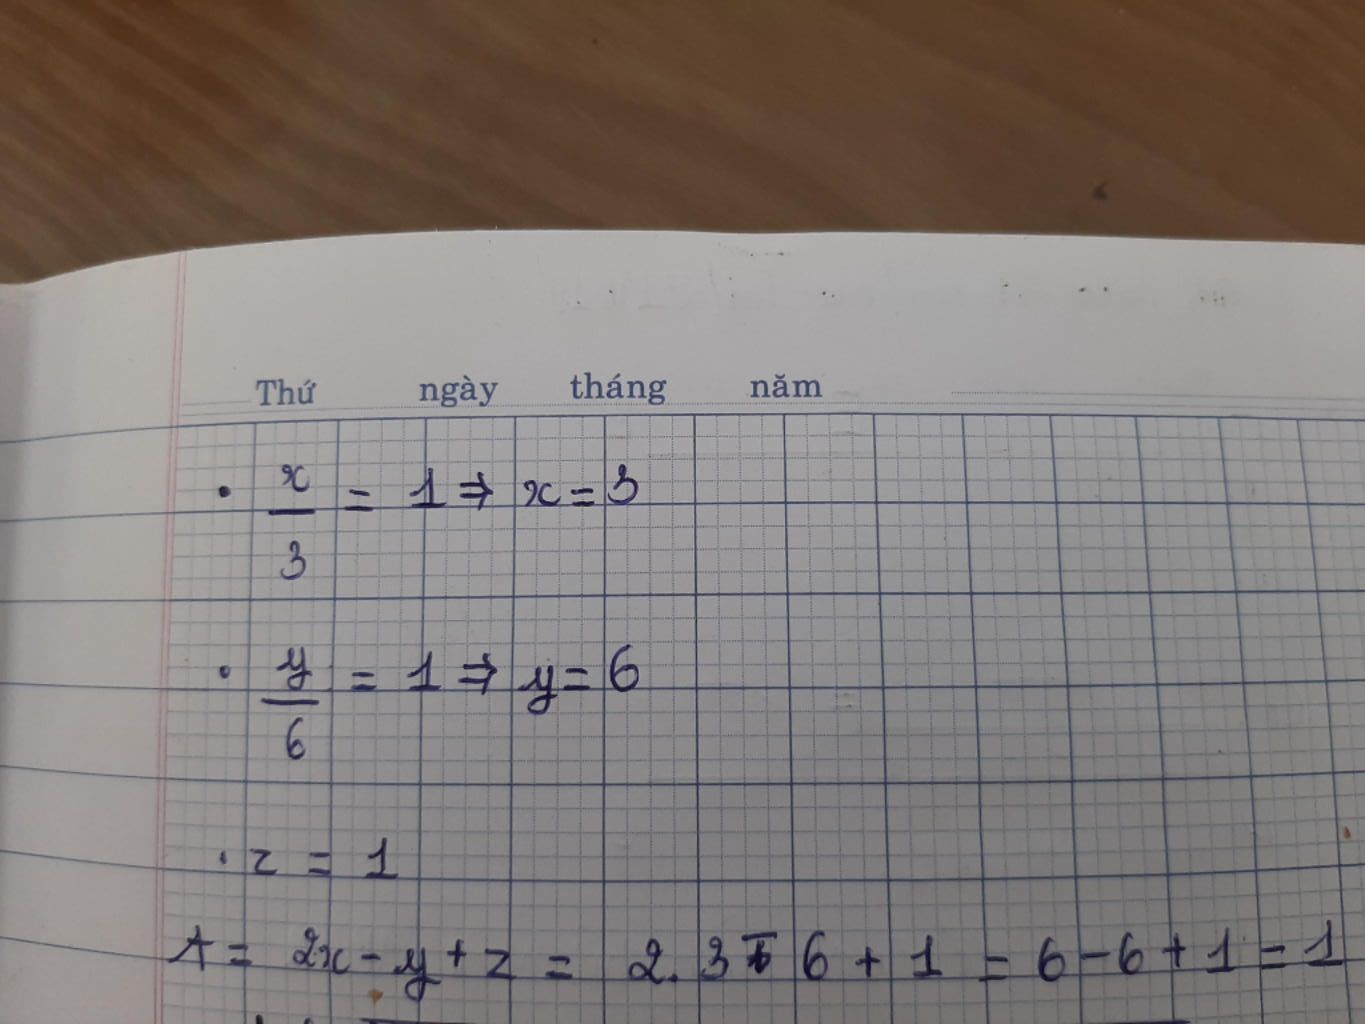 Thứ ngày tháng năm
• x/3 = 1 ⇒ x = 3
• y/6 = 1 ⇒ y = 6
• z = 1
A = 2x - y + z = 2. 3 - 6 + 1 = 6 - 6 + 1 = 1